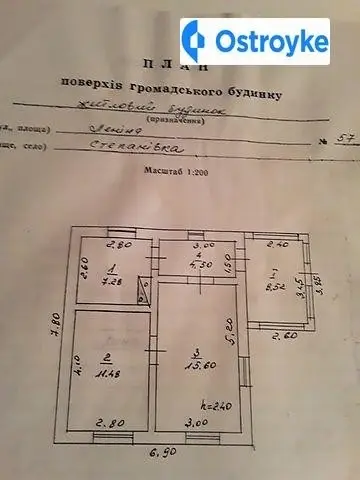 Ostroyke
ПЛАН
поверхів громадського будинку
житловий будинок
(призначення)
площа) Леніна № 57
село) Степанівка
Масштаб 1:200
2.80
3.00
2.40
2.60
1
7.28
4
4.50
1.50
I
8.52
3.45
3.85
2.60
7.80
4.10
2
11.48
3
15.60
5.20
h=2.40
2.80
3.00
6.90